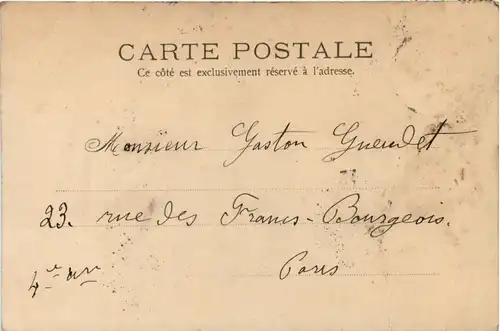 CARTE POSTALE
Ce côté est exclusivement réservé à l'adresse.
Monsieur Gaston Gueudet
23. rue des Francs-Bourgeois.
4e arr
Paris